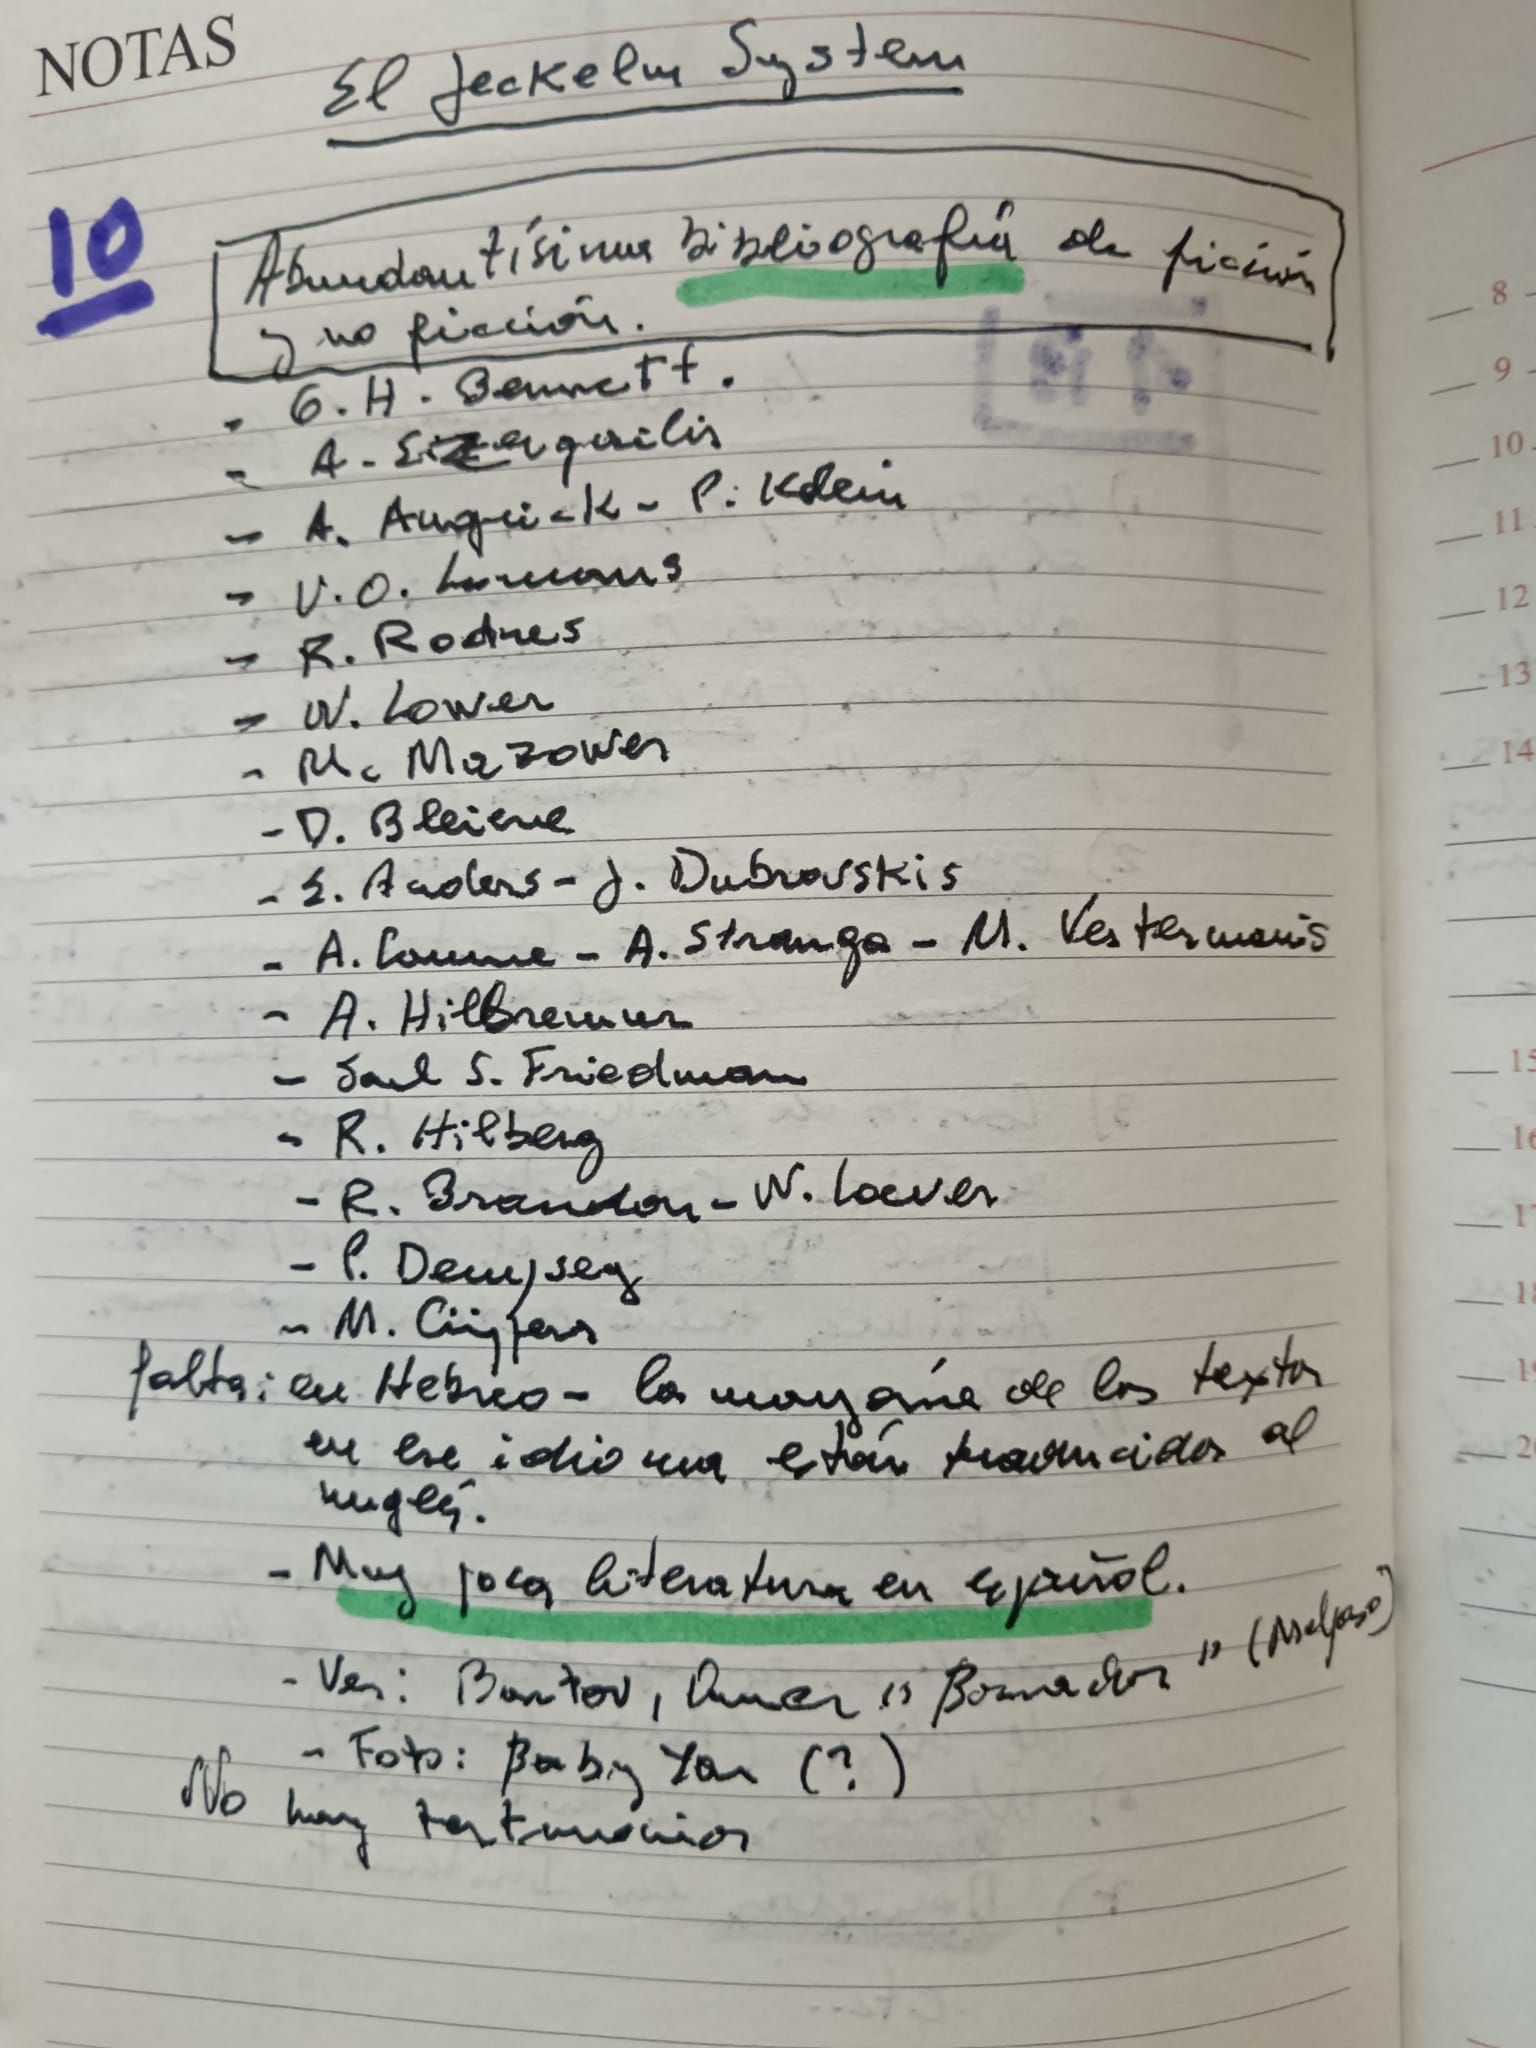 NOTAS
El Jeckeln System
10
Abundantísima bibliografía de ficción
y no ficción.
- G. H. Bennett.
- A. Ezergailis
- A. Angrick - P. Klein
- V. O. Lumans
- R. Rodhes
- W. Lower
- M. Mazower
- D. Bleiere
- E. Anders - J. Dubrovskis
- A. - A. Stranga - M. Vestermanis
- A. Hilbrenner
- Saul S. Friedman
- R. Hilberg
- R. Brandon - W. Lower
- P. Dempsey
- M. Cüppers
falta: en Hebreo - la mayoría de los textos
en ese idioma están traducidos al
inglés.
- Muy poca literatura en español.
- Ver: Bartov, Omer " Borrados " (Malpaso)
- Foto: Baby Yar (?)
No hay testimonios
8
9
10
11
12
13
14
15
16
17
18
19
20